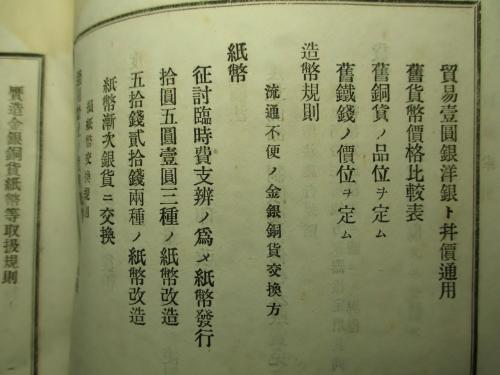 貿易壹圓銀洋銀ト幷價通用
舊貨幣價格比較表
舊銅貨ノ品位ヲ定ム
舊鐵錢ノ價位ヲ定ム
造幣規則
流通不便ノ金銀銅貨交換方
紙幣
征討臨時費支辨ノ爲メ紙幣發行
拾圓五圓壹圓三種ノ紙幣改造
五拾錢貳拾錢兩種ノ紙幣改造
紙幣漸次銀貨ニ交換
損紙幣交換規則
贋造金銀銅貨紙幣等取扱規則